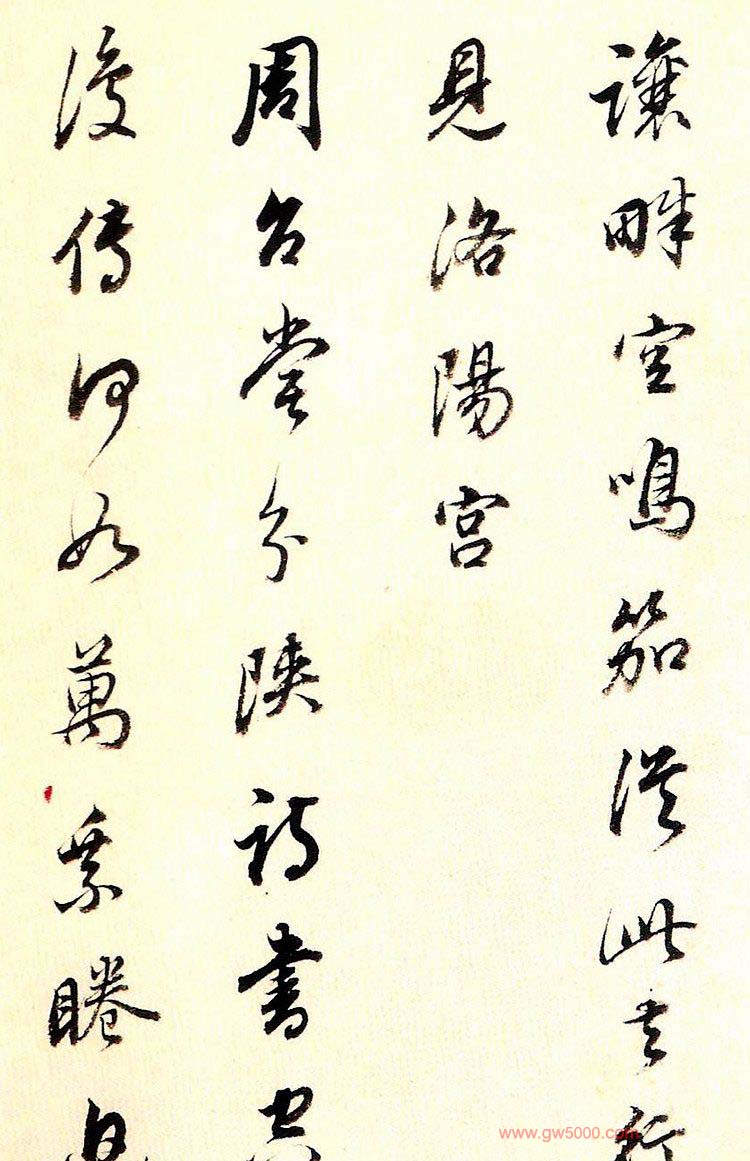 讓畔空鳴笳從此去行
見洛陽宮
周召嘗分陝詩書空
復傳何如萬乘睠
www.gw5000.com